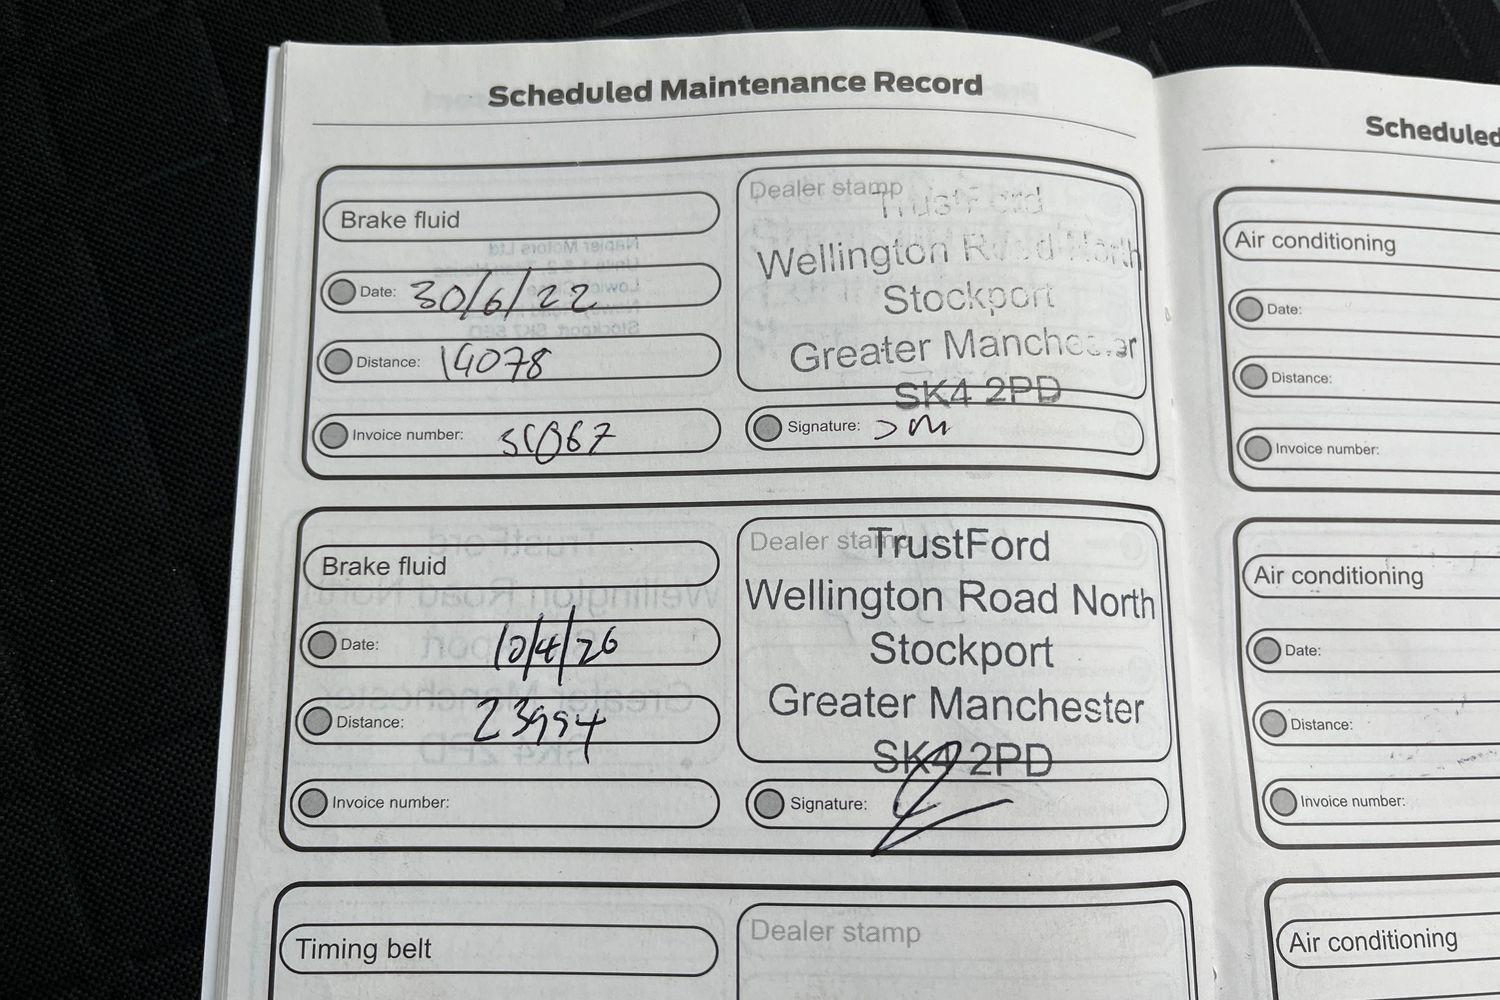 Scheduled Maintenance Record
Brake fluid
Date: 30/6/22
Distance: 14078
Invoice number:
Dealer stamp
TrustFord
Wellington Road North
Stockport
Greater Manchester
SK4 2PD
Signature:
Brake fluid
Date: 10/4/26
Distance: 23994
Invoice number:
Dealer stamp
TrustFord
Wellington Road North
Stockport
Greater Manchester
SK4 2PD
Signature:
Timing belt
Dealer stamp
Scheduled
Air conditioning
Date:
Distance:
Invoice number:
Air conditioning
Date:
Distance:
Invoice number:
Air conditioning